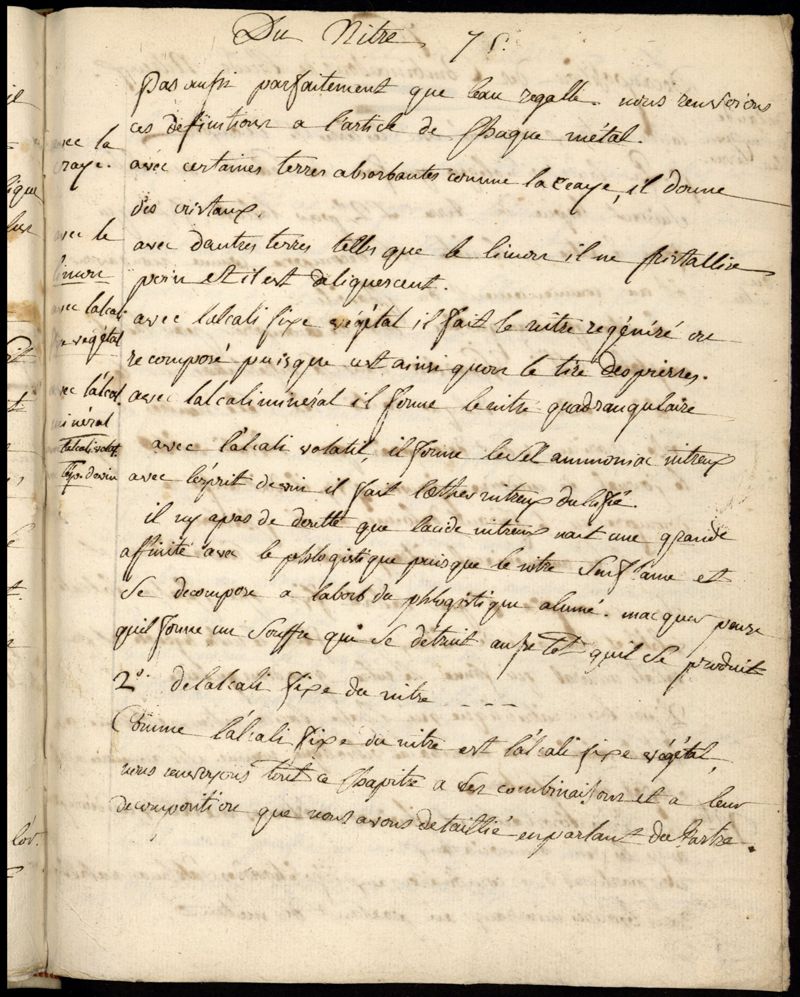 Du Nitre 75.
pas aussi parfaitement que leau regalle. nous renverrons
ces definitions a l'article de Chaque métal.
avec la craye.
avec certaines terres absorbantes comme la craye, il donne
des cristaux.
avec le limon
avec d'autres terres telles que le limon il ne cristallise
poin et il est deliquescent.
avec lalcali fixe végétal
avec lalcali fixe végétal il fait le nitre regénéré ou
recomposé puisque cest ainsi quon le tire des pierres.
avec lálcal. minéral
avec lalcali minéral il forme le nitre quadrangulaire
lalcali volat.
avec lálcali volatil, il forme le Sel ammoniac nitreux
lesp. de vin
avec l'esprit de vin il fait l'æther nitreux dulcifié.
il ny a pas de doutte que lacide nitreux nait une grande
affinité avec le phlogistique puisque le nitre Senflame et
Se decompose a labord du phlogistique alumé. macquer pense
quil forme un Souffre qui Se détruit aussitot quil Se produit
2º. de lalcali fixe du nitre
Comme lálcali fixe du nitre est lálcali fixe végétal,
nous renvoyons tout ce Chapitre a Ses combinaisons et a leur
decomposition que nous avons detaillié en parlant du tartre.